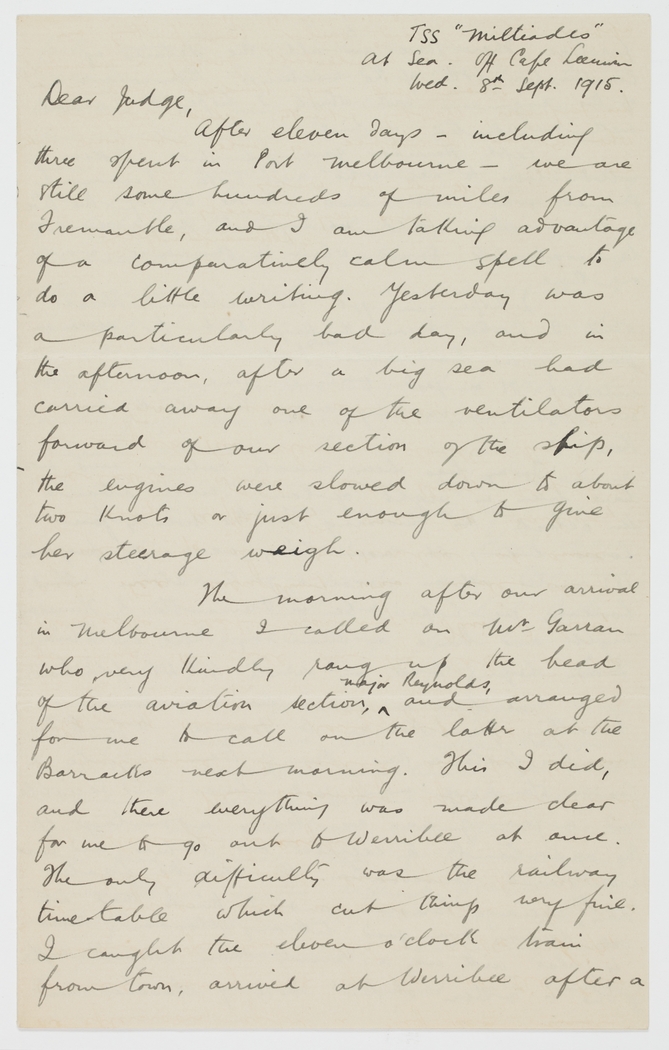 TSS "Miltiades"
At Sea. Off Cape Leeuwin
Wed. 8th Sept. 1915.
Dear Judge,
After eleven days - including
three spent in Port Melbourne - we are
still some hundreds of miles from
Fremantle, and I am taking advantage
of a comparatively calm spell to
do a little writing. Yesterday was
a particularly bad day, and in
the afternoon, after a big sea had
carried away one of the ventilators
forward of our section of the ship,
the engines were slowed down to about
two knots or just enough to give
her steerage weigh.
The morning after our arrival
in Melbourne I called on Mr Garran
who very kindly rang up the head
major Reynolds,
of the aviation section, ^ and arranged
for me to call on the latter at the
Barracks next morning. This I did,
and there everything was made clear
for me to go out to Werribee at once.
The only difficulty was the railway
time-table which cut things very fine.
I caught the eleven o'clock train
from town, arrived at Werribee after a